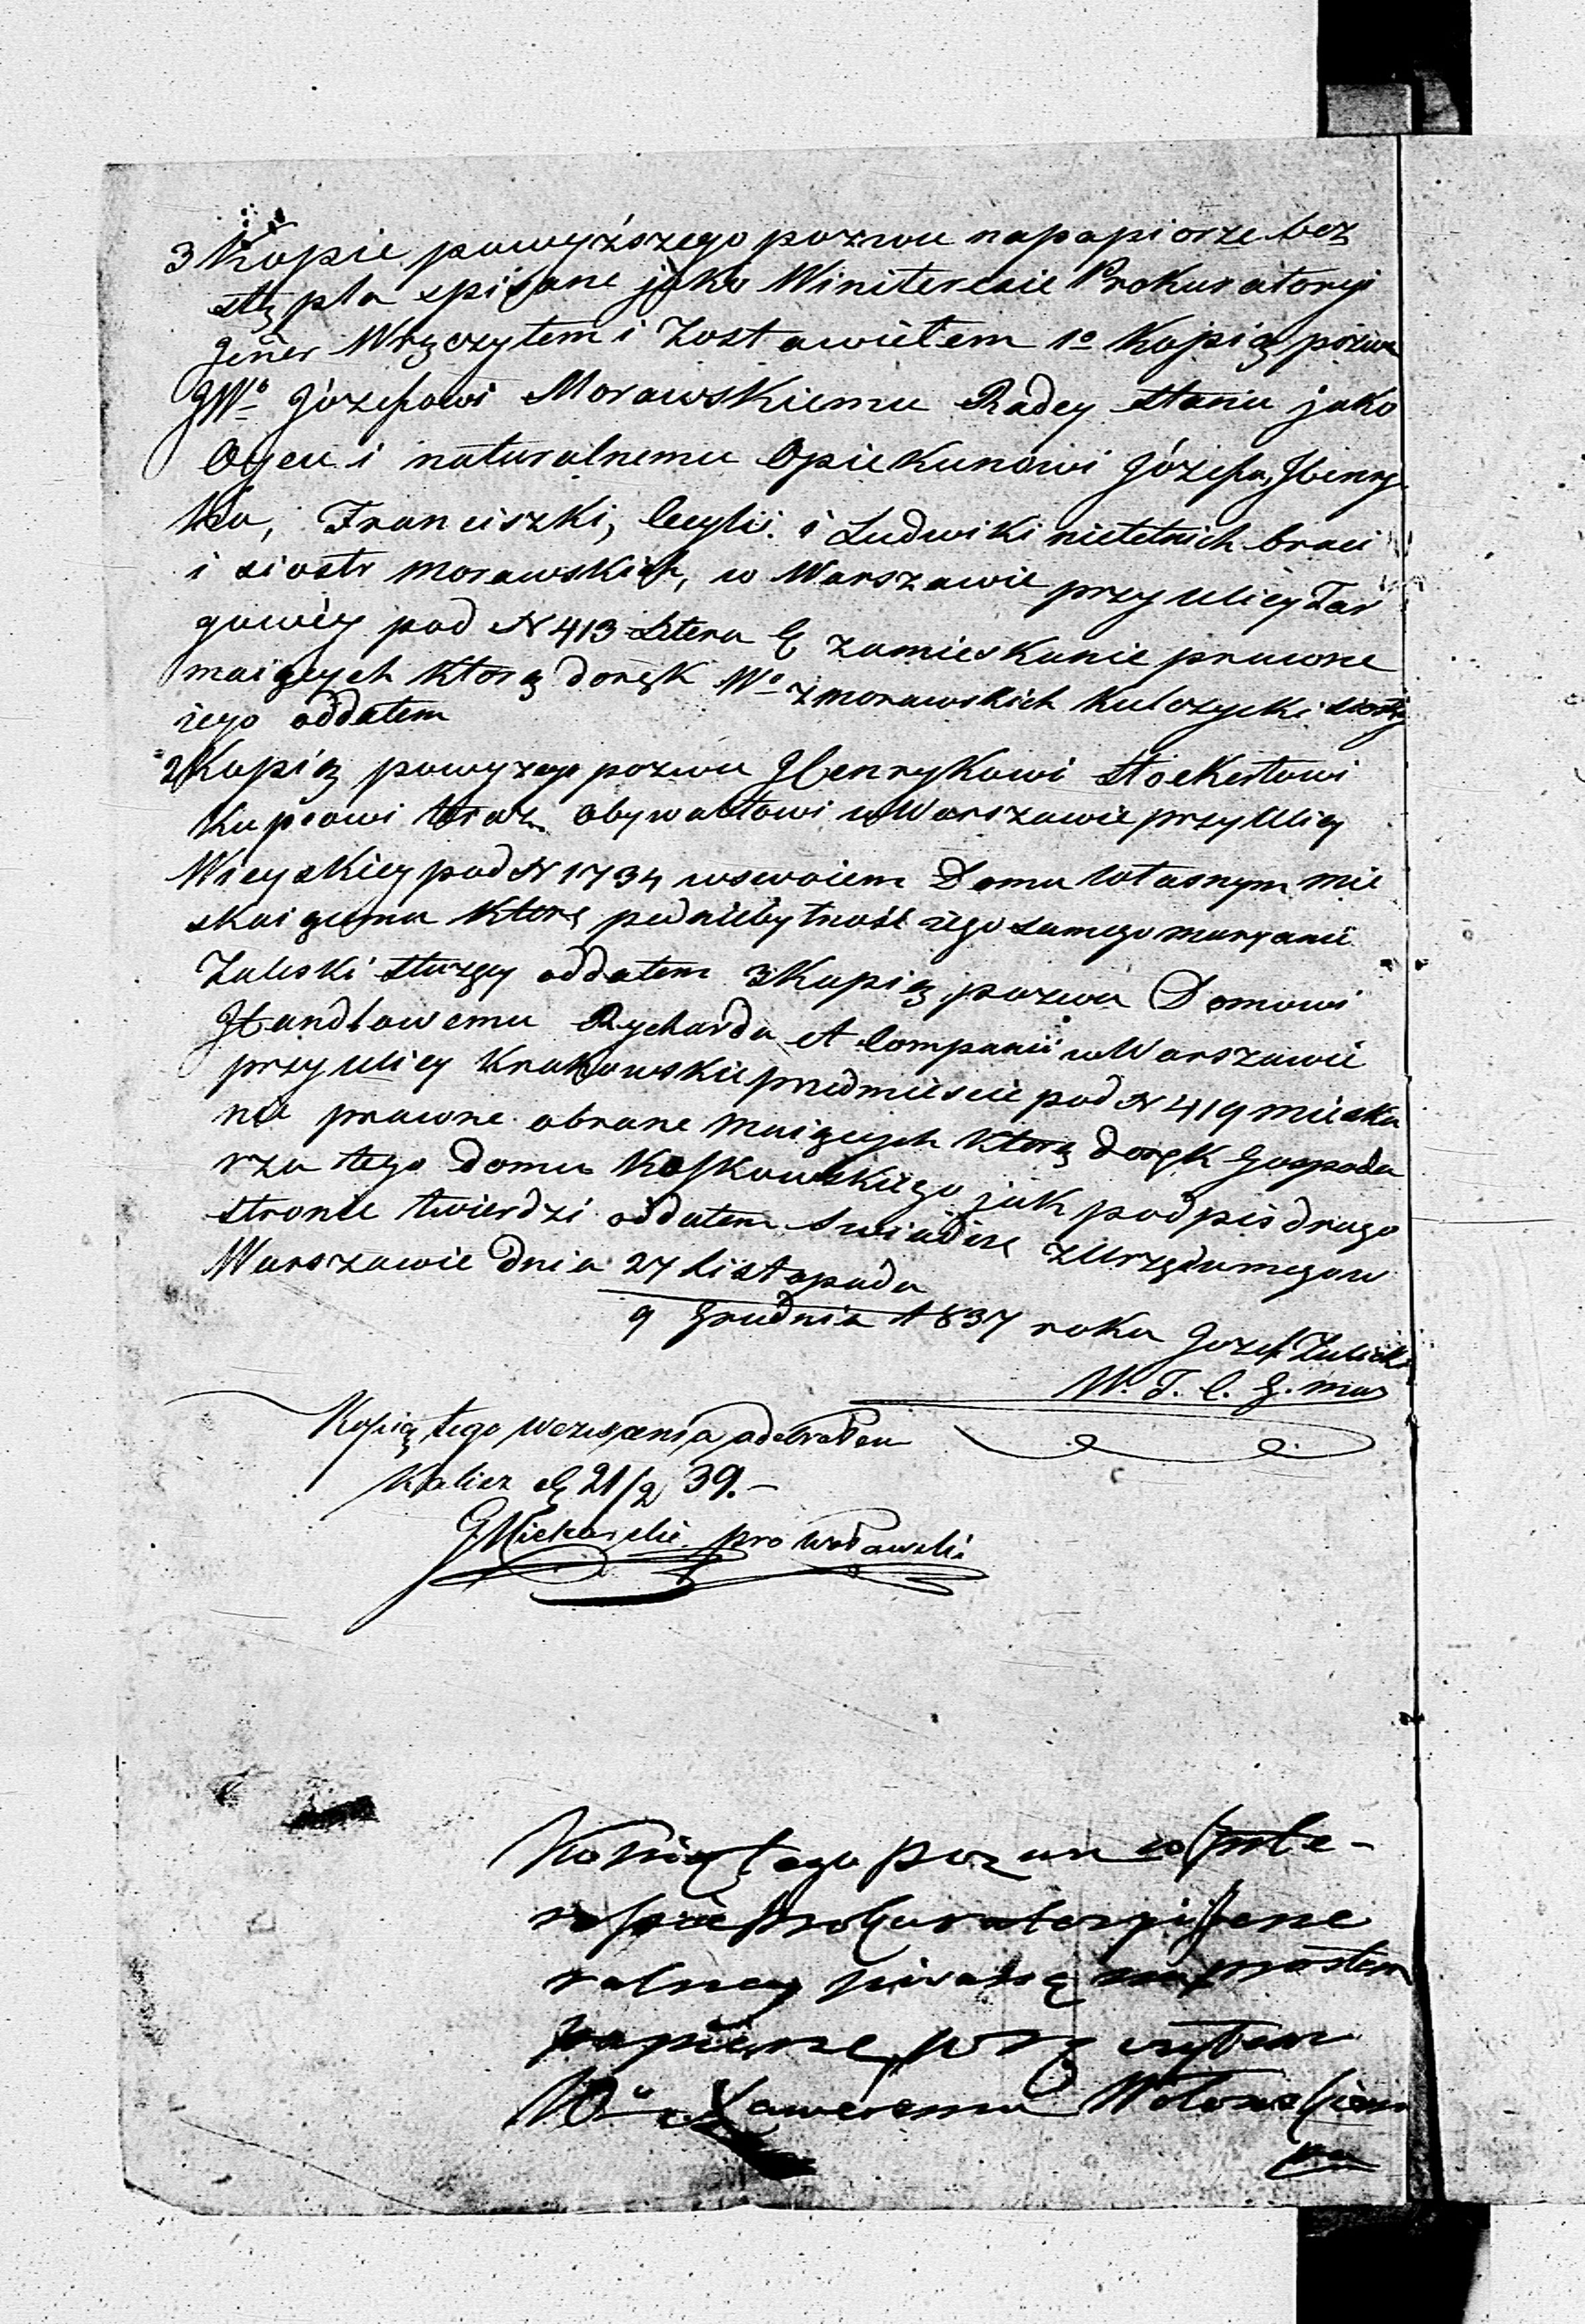 3 Kopie powyższego pozwu na papiorze bez
stępla spisane jako W initeresie Prokuratoryi
Jener Wręczyłem i Zostawiełem 1o Kopią pozwu
JWo Józefowi Morawskiemu Radcy Stanu jako
Oycu i naturalnemu Opiekunowi Józefa, Henry
ka, Franciszki, Cecylii i Ludwiki nieletnich braci
i siostr Morawskich, w Warszawie przy Ulicy Tar
gowéy pod N 413 Litera C zamieskanie prawne
maiących którą do ręk Wo z Morawskich Kulczycki siostry
iego oddałem
2 Kopią powyzego pozwu Henrykowi Stoekertowi
kupcowi teraz obywatlowi w Warszawie przy Ulicy
Wieyskiey pod N 1734 w swoiem Domu własnym mie
skaiącemu którę pod niebytność iego samego maryanie
Zaleski służący oddałem 3 Kopią pozwu Domowi
Handlowemu Rycharda et Companii w Warszawie
przy ulicy Krakowskie przedmieście pod N 419 mieska
nie prawne obrane maiących którą do ręk Gospoda
rza tego domu Koskowskiego jak podpis drugo
stronie twierdzi oddałem Swiadczę z Urzędu mego w
Warszawie Dnia 27 Listopada
9 Grudnia 1837 roku Jozef Zaleski
W. T. C. G. Maz
Kopią tego wezwania odebrałem
Kalisz d 21/2 39.–
pro Wołowski
Kopią tego pozwu w Inte-
resie Prokuratoryi Jene
ralney pisaną na prostem
papierze, wręczyłem
Wu Xaweremu Wołowskiem